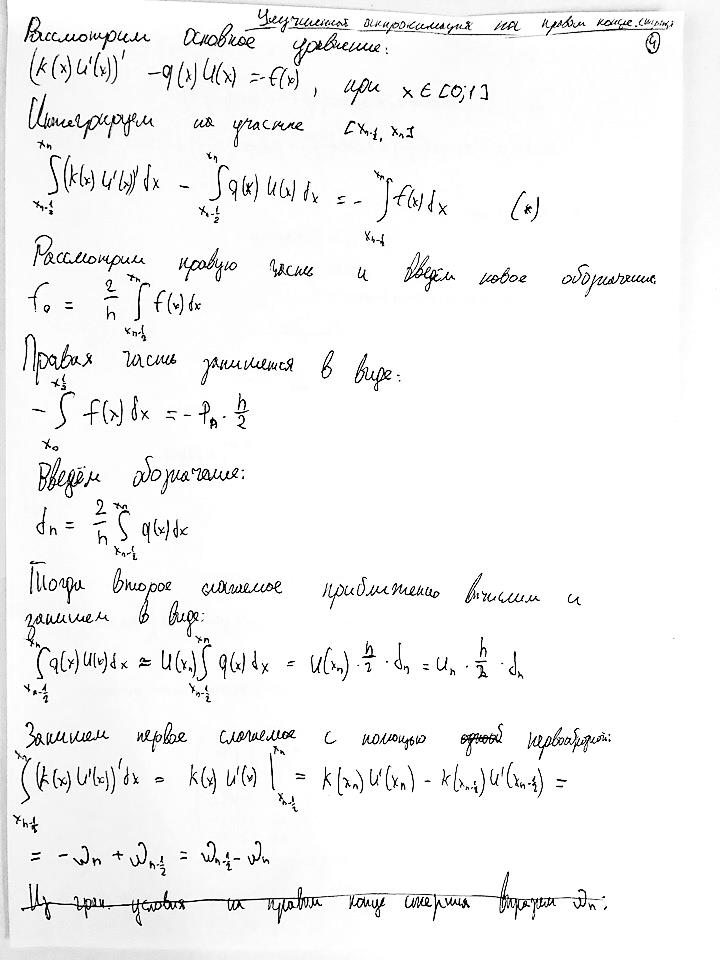 Улучшенная аппроксимация на правом конце стержня
4
Рассмотрим основное уравнение:
(k(x)u'(x))' - q(x)u(x) = -f(x), при x ∈ [0;1]
Интегрируем на участке [x_{n-1/2}, x_n]
∫_{x_{n-1/2}}^{x_n} (k(x)u'(x))' dx - ∫_{x_{n-1/2}}^{x_n} q(x)u(x)dx = - ∫_{x_{n-1/2}}^{x_n} f(x)dx (*)
Рассмотрим правую часть и введём новое обозначение
f_0 = 2/h ∫_{x_{n-1/2}}^{x_n} f(x)dx
Правая часть запишется в виде:
- ∫_{x_0}^{x_{1/2}} f(x)dx = -P_n · h/2
Введём обозначение:
d_n = 2/h ∫_{x_{n-1/2}}^{x_n} q(x)dx
Тогда второе слагаемое приближенно вычислим и
запишем в виде:
∫_{x_{n-1/2}}^{x_n} q(x)u(x)dx ≈ u(x_n) ∫_{x_{n-1/2}}^{x_n} q(x)dx = u(x_n) · h/2 · d_n = u_n · h/2 · d_n
Запишем первое слагаемое с помощью первообразной:
∫_{x_{n-1/2}}^{x_n} (k(x)u'(x))' dx = k(x)u'(x) |_{x_{n-1/2}}^{x_n} = k(x_n)u'(x_n) - k(x_{n-1/2})u'(x_{n-1/2}) =
= -ω_n + ω_{n-1/2} = ω_{n-1/2} - ω_n
Из гран. условия на правом конце стержня выразим ω_n: